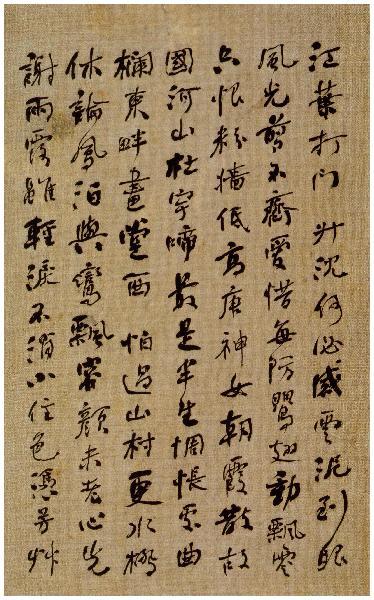 江葉打門升沈何必感雲泥到眼
風光剪不齊愛惜每防鶯翅動飄零
只恨粉牆低高唐神女朝霞散故
國河山杜宇啼最是半生惆悵處曲
欄東畔畫堂西怕過山村更水橋
休論鳳泊與鸞飄容顏未老心先
謝雨露雖輕淚不消小住色憑芳草